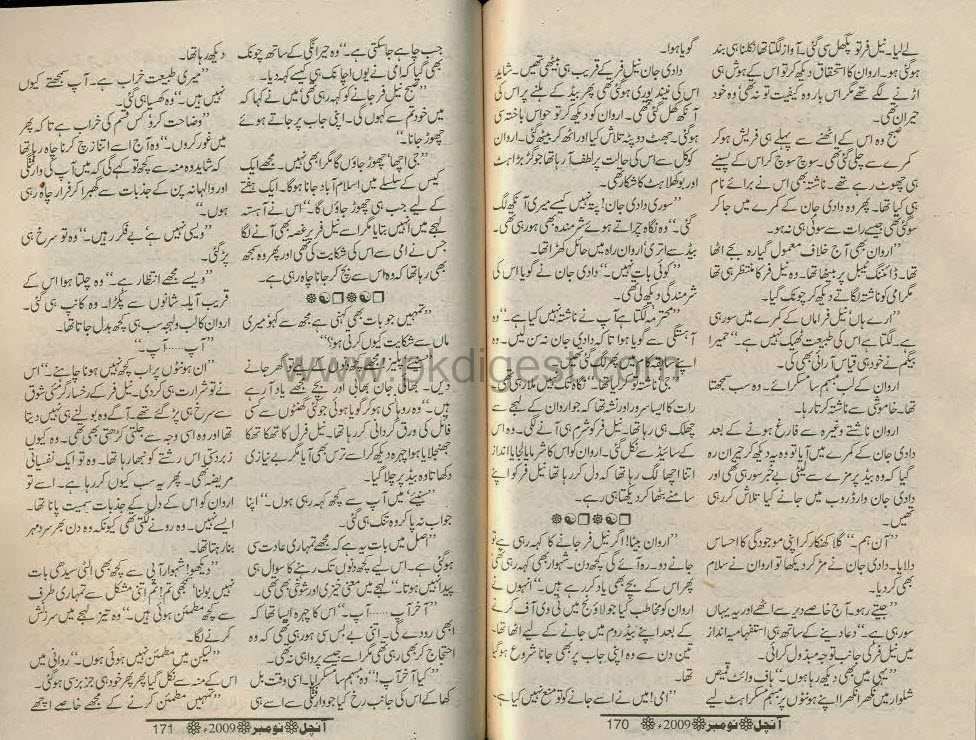 لے لیا۔ نیل فر تو پگھل سی گئی۔ آواز لگتا تھا نکلنا ہی بند
ہو گئی ہو۔ اروان کا استحقاق دیکھ کر تو اس کے ہوش ہی
اڑنے لگے تھے مگر اس بار وہ کیفیت تو نہ تھی وہ خود
حیران تھی۔
صبح وہ اس کے اٹھنے سے پہلے ہی فریش ہو کر
کمرے سے چلی گئی تھی۔ سوچ سوچ کر اس کے پسینے
ہی چھوٹ رہے تھے۔ ناشتہ بھی اس نے برائے نام
ہی کیا تھا۔ پھر وہ دادی جان کے کمرے میں جا کر
سو گئی تھی جیسے رات سے سوئی ہی نہ ہو۔
اروان بھی آج خلاف معمول گیارہ بجے اٹھا
تھا۔ ڈائننگ ٹیبل پر بیٹھا تھا۔ وہ نیل فر کا منتظر ہی تھا
مگر امی کو ناشتہ لگاتے دیکھ کر چونک گیا۔
"ارے ہاں نیل فر اماں کے کمرے میں سو رہی
ہے۔ لگتا ہے اس کی طبیعت ٹھیک نہیں ہے۔" حمیرا
بیگم نے خود ہی قیاس آرائی بھی کی۔
اروان کے لب مبہم سا مسکرائے۔ وہ سب سمجھتا
تھا۔ خاموشی سے ناشتہ کرتا رہا۔
اروان ناشتے وغیرہ سے فارغ ہونے کے بعد
دادی جان کے کمرے میں آیا تو وہ یہ دیکھ کر حیران رہ
گیا کہ وہ بیڈ پر مزے سے لیٹی بے خبر سو رہی تھی اور
دادی جان وارڈروب میں جانے کیا تلاش کر رہی
تھیں۔
"آں ہم۔" گلا کھنکار کر اپنی موجودگی کا احساس
دلایا۔ دادی جان نے مڑ کر دیکھا تو اروان نے سلام
بھی کر دیا۔
"جیتے رہو۔ آج خاصے دیر سے اٹھے اور یہ یہاں
سو رہی ہے۔" دعا دینے کے ساتھ ہی استفہامیہ انداز
میں نیل فر کی جانب توجہ مبذول کرائی۔
"یہی میں بھی دیکھ رہا ہوں۔" آف وائٹ قمیص
شلوار میں نکھرا نکھرا اپنے ہونٹوں پر مبہم مسکراہٹ لیے
گویا ہوا۔
دادی جان نیل فر کے قریب ہی بیٹھی تھیں۔ شاید
اس کی نیند پوری ہو گئی تھی پھر بیڈ کے ہلنے پر اس کی
آنکھ کھل گئی تھی۔ اروان کو دیکھ کر تو حواس باختہ سی
ہو گئی۔ جھٹ دوپٹہ تلاش کیا اور اٹھ کر بیٹھ گئی۔ اروان
کو کل سے اس کی حالت پر لطف آ رہا تھا جو گڑبڑاہٹ
اور بوکھلاہٹ کا شکار تھی۔
"سوری دادی جان! پتہ نہیں کیسے میری آنکھ لگ
گئی۔" وہ نگاہ چراتے ہوئے شرمندہ بھی ہو رہی تھی۔
بیڈ سے اتری اروان راہ میں حائل کھڑا تھا۔
"کوئی بات نہیں۔" دادی جان نے گویا اس کی
شرمندگی دیکھ لی تھی۔
"محترمہ لگتا ہے آپ نے ناشتہ نہیں کیا ہے۔" وہ
آہستگی سے گویا ہوا تھا کہ دادی جان نہ سن لیں۔ وہ
"جی ناشتہ کر لیا تھا۔" نگاہ تک نہیں ملا رہی تھی۔
رات کا ایسا سرور اور نشہ تھا کہ جو اروان کے لہجے سے
چھلک ہی رہا تھا۔ نیل فر کو شرم ہی آنے لگی۔ وہ اس
کے سائیڈ سے نکل گئی۔ اروان کو اس کا شرمایا لجایا انداز
اتنا اچھا لگ رہا تھا کہ دل کر رہا تھا کہ نیل فر کو اپنے
سامنے بٹھا کر دیکھتا ہی رہے۔
"اروان بیٹا! اگر نیل فر جانے کا کہہ رہی ہے تو
جانے دو۔ رہ آئے گی کچھ دن۔ شہوار بھی کہہ رہی تھی
پھر اس کے بچے بھی یاد کر رہے ہیں۔" انہوں نے
اروان کو مخاطب کیا جو لاؤنج میں ٹی وی آف کرنے
کے بعد اپنے بیڈ روم میں جانے کے لیے اٹھا تھا۔
تین دن سے وہ اپنی جاب پر بھی جانا شروع ہو گیا
تھا۔
"امی! میں نے اسے جانے کو تو منع نہیں کیا ہے
آنچل نومبر 2009ء 170
جب چاہے جا سکتی ہے۔" وہ حیرانگی کے ساتھ چونک
بھی گیا کہ امی نے یوں اچانک ہی کیسے کہہ دیا۔
"صبح نیل فر جانے کو کہہ رہی تھی میں نے کہا کہ
میں خود تم سے کہوں گی۔ اپنی جاب پر جاتے ہوئے
چھوڑ جانا۔"
"جی اچھا چھوڑ جاؤں گا مگر ابھی نہیں۔ مجھے ایک
کیس کے سلسلے میں اسلام آباد جانا ہوگا۔ ایک ہفتے
کے لیے جب ہی چھوڑ جاؤں گا۔" اس نے آہستہ
لہجے میں انہیں بتایا مگر اسے نیل فر پر غصہ بھی آنے لگا
جس نے امی سے اس کی شکایت کی تھی اور پھر وہ سمجھ
بھی رہا تھا کہ وہ اس سے بچ کر جانا چاہ رہی ہے۔
"تمہیں جو بات بھی کہنی ہے مجھ سے کہو میری
ماں سے شکایت کیوں کرتی ہو؟"
دیں۔ بھائی جان بھابی اور بچے مجھے یاد آ رہے
ہیں۔" وہ روہانسی ہو کر گویا ہوئی جو کئی گھنٹوں سے کسی
فائل کی ورق گردانی کر رہا تھا۔ نیل فر اس کا تھکا تھکا
جھنجلایا ہوا چہرہ دیکھ کر اسے ترس بھی آیا مگر بے نیازی
دکھاتا وہ بیڈ پر چلا گیا۔
"سنیئے میں آپ سے کچھ کہہ رہی ہوں۔" اپنا
جواب نہ پا کر وہ تنک ہی گئی۔
"اصل میں بات یہ ہے کہ مجھے تمہاری عادت سی
ہو گئی ہے۔ اس لیے کچھ دنوں تک رہنے کا سوال ہی
پیدا نہیں ہوتا۔" لہجے میں معنی خیزی اور شوخی بھی تھی۔
"آخر آپ..... آپ۔" اس کا چہرہ ایسا تھا کہ
ابھی رو دے گی۔ اتنی بے بسی ہو رہی تھی کہ وہ
احتجاج کر بھی رہی تھی مگر اسے جیسے پروا ہی نہ تھی۔
"کیا آخر آپ!" وہ مبہم سا مسکرایا۔ اسی وقت بل
کھا کے اس کی جانب رخ کیا جو وارفتگی سے اسے ہی
دیکھ رہا تھا۔
"میری طبیعت خراب ہے۔ آپ سمجھتے کیوں
نہیں ہیں۔" وہ کھسیا ہی گئی۔
"وضاحت کرو' کس قسم کی خراب ہے تاکہ پھر
میں غور کروں۔" وہ آج اسے اتنا زچ کرنا چاہ رہا تھا
کہ شاید وہ منہ سے کچھ تو کہے گی کہ میں آپ کی وارفتگی
اور والہانہ پن کے جذبات سے گھبرا کر فرار چاہ رہی
ہوں۔"
"ویسی نہیں ہے' بے فکر رہیں۔" وہ تو سرخ ہی
پڑ گئی۔
"ویسے مجھے انتظار ہے۔" وہ چلتا ہوا اس کے
قریب آیا۔ شانوں سے پکڑا۔ وہ کانپ ہی گئی۔
اروان کا لب و لہجہ سب ہی کچھ بدل جاتا تھا۔
"آپ..... آپ۔"
"ان ہونٹوں پر اب کچھ نہیں ہونا چاہئے۔" اس
نے تو شرارت ہی کر دی۔ نیل فر کے رخسار کی شوق
سے سرخ ہی پڑ گئے تھے۔ آگے وہ بولنے ہی نہیں دیتا
تھا اور وہ اسی وجہ سے جلتی کڑھتی بھی تھی۔ وہ کیوں
زبردستی اس رشتے کو نبھا رہا تھا۔ وہ تو ایک نفسیاتی
مریضہ تھی۔ پھر یہ سب کیوں کر رہا ہے۔ اسے تو
اروان کو اس کے دل کے جذبات سمیت پانا تھا۔
ایسے نہیں۔ وہ رونے لگتی تھی کیونکہ وہ دن بھر سرد مہر
بنا رہتا تھا۔
"دیکھو! شہوار آپی سے کچھ بھی الٹی سیدھی بات
نہیں بولنا سمجھی تم! اتنی مشکل سے تمہاری طرف
سے کچھ مطمئن ہوئی ہیں۔" وہ تیز لہجے میں سرزنش
کرنے لگا۔
"لیکن میں مطمئن نہیں ہوئی ہوں۔" روانی میں
اس کے منہ سے نکل گیا پھر پھر خود ہی جز بز سی ہو گئی۔
"تمہیں مطمئن کرنے کے مجھے خاصے اچھے
آنچل نومبر 2009ء 171
www.pkdigest.com